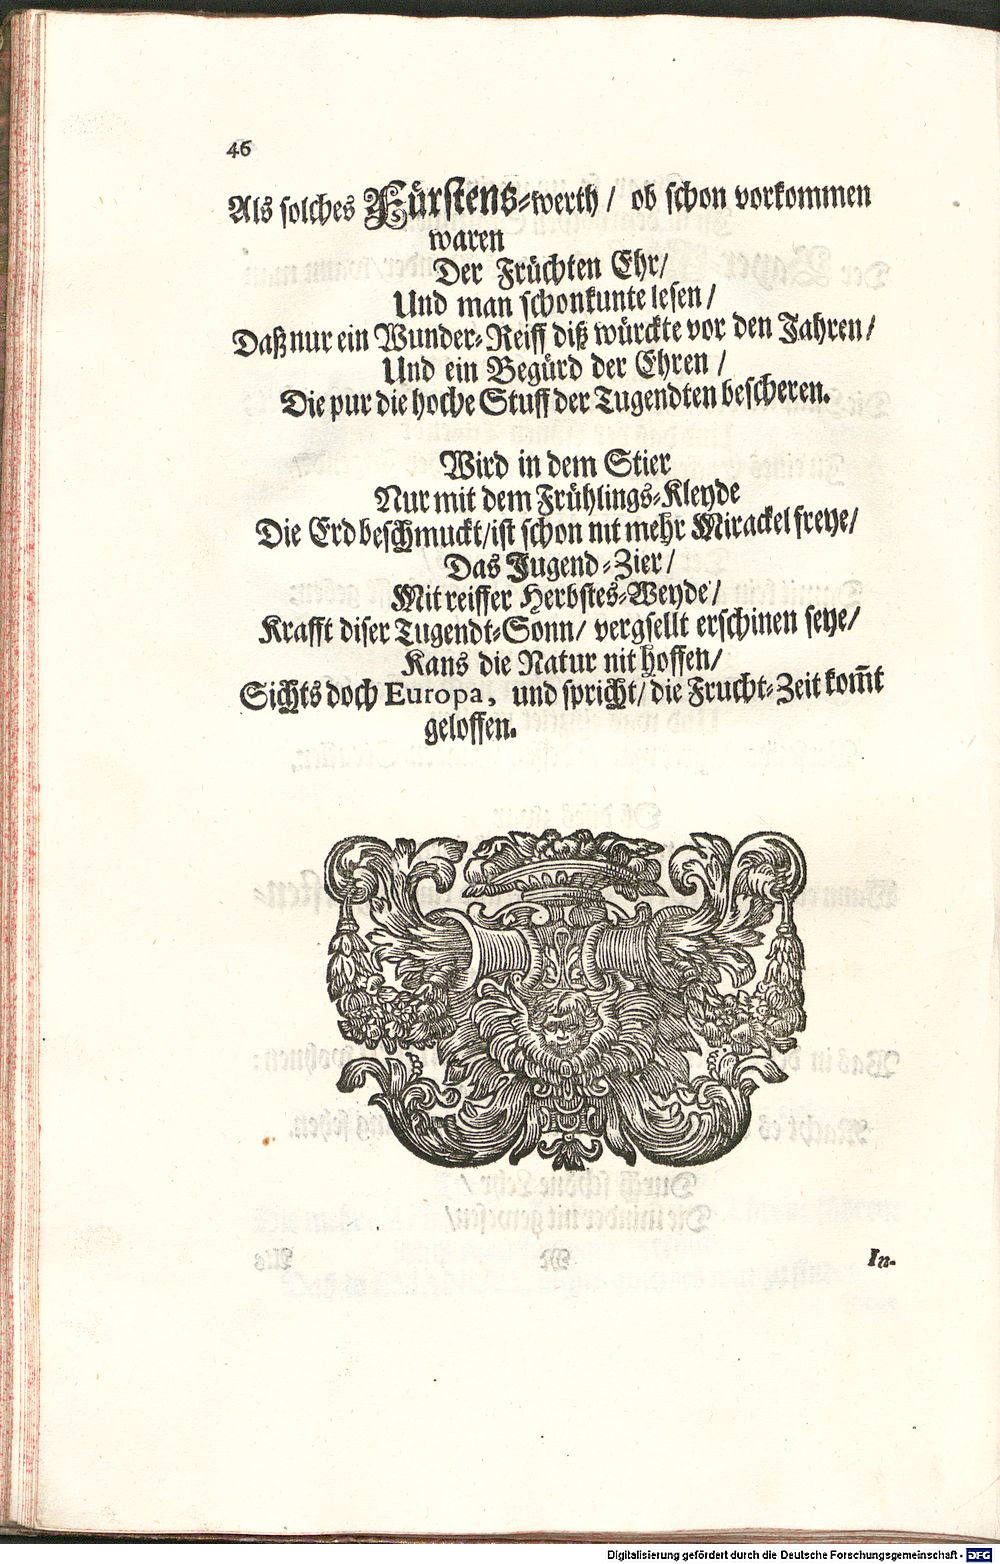 46
Als solches Fürstens-werth / ob schon vorkommen
waren
Der Früchten Ehr/
Und man schon kunte lesen /
Daß nur ein Wunder-Reiff diß würckte vor den Jahren /
Und ein Begürd der Ehren /
Die pur die hoche Stuff der Tugendten bescheren.
Wird in dem Stier
Nur mit dem Frühlings-Kleyde
Die Erd beschmuckt/ist schon nit mehr Mirackel freye/
Das Jugend-Zier/
Mit reiffer Herbstes-Weyde/
Krafft diser Tugendt-Sonn/ vergsellt erschinen seye/
Kans die Natur nit hoffen/
Sichts doch Europa, und spricht/ die Frucht-Zeit kom̄t
geloffen.
In-
Digitalisierung gefördert durch die Deutsche Forschungsgemeinschaft - DFG